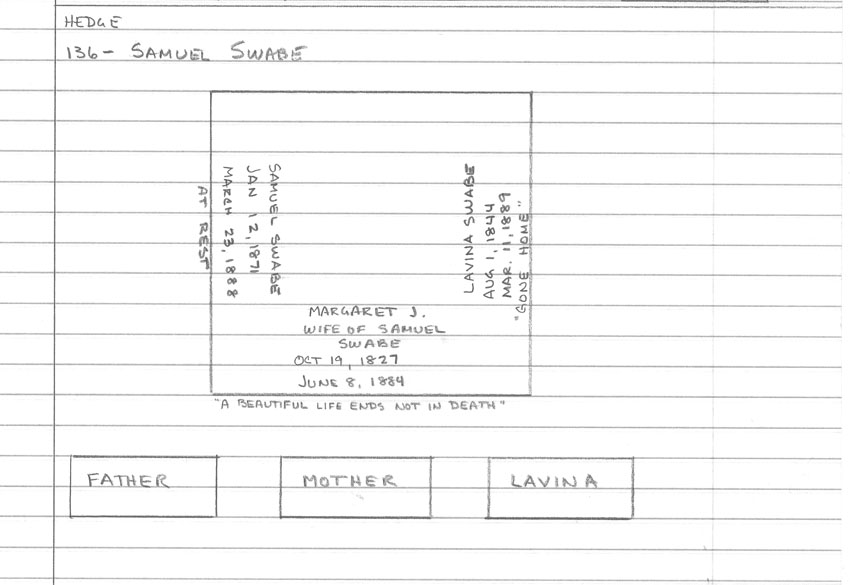 HEDGE
136- SAMUEL SWABE
SAMUEL SWABE
JAN 12, 1871
MARCH 23, 1888
AT REST
LAVINA SWABE
AUG 1, 1844
MAR. 11, 1889
"GONE HOME"
MARGARET J.
WIFE OF SAMUEL
SWABE
OCT 19, 1827
JUNE 8, 1884
"A BEAUTIFUL LIFE ENDS NOT IN DEATH"
FATHER
MOTHER
LAVINA